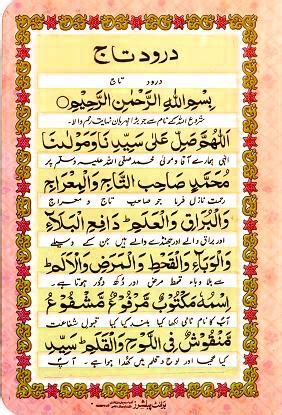 درود تاج
درود تاج
بِسْمِ اللهِ الرَّحْمٰنِ الرَّحِيْمِ
شروع اللہ کے نام سے جو بڑا مہربان نہایت رحم والا۔
اَللّٰهُمَّ صَلِّ عَلٰى سَيِّدِنَا وَمَوْلٰىنَا
الٰہی ہمارے آقا و مولیٰ محمد صلی اللہ علیہ وسلم پر
مُحَمَّدٍ صَاحِبِ التَّاجِ وَالْمِعْرَاجِ
رحمت نازل فرما جو صاحب تاج و معراج
وَالْبُرَاقِ وَالْعَلَمِ دَافِعِ الْبَلَاءِ
اور براق والے اور جھنڈے والے ہیں جن کے وسیلے
وَالْوَبَاءِ وَالْقَحْطِ وَالْمَرَضِ وَالْاَلَمِ
سے بلا وباء قحط مرض اور دکھ دور ہوتا ہے۔
اِسْمُهٗ مَكْتُوْبٌ مَّرْفُوْعٌ مَّشْفُوْعٌ
آپ کا نام نامی لکھا گیا بلند کیا گیا قبول شفاعت
مَّنْقُوْشٌ فِى اللَّوْحِ وَالْقَلَمِ سَيِّدِ
کیا گیا اور لوح و قلم میں کھدا ہوا ہے۔ آپ